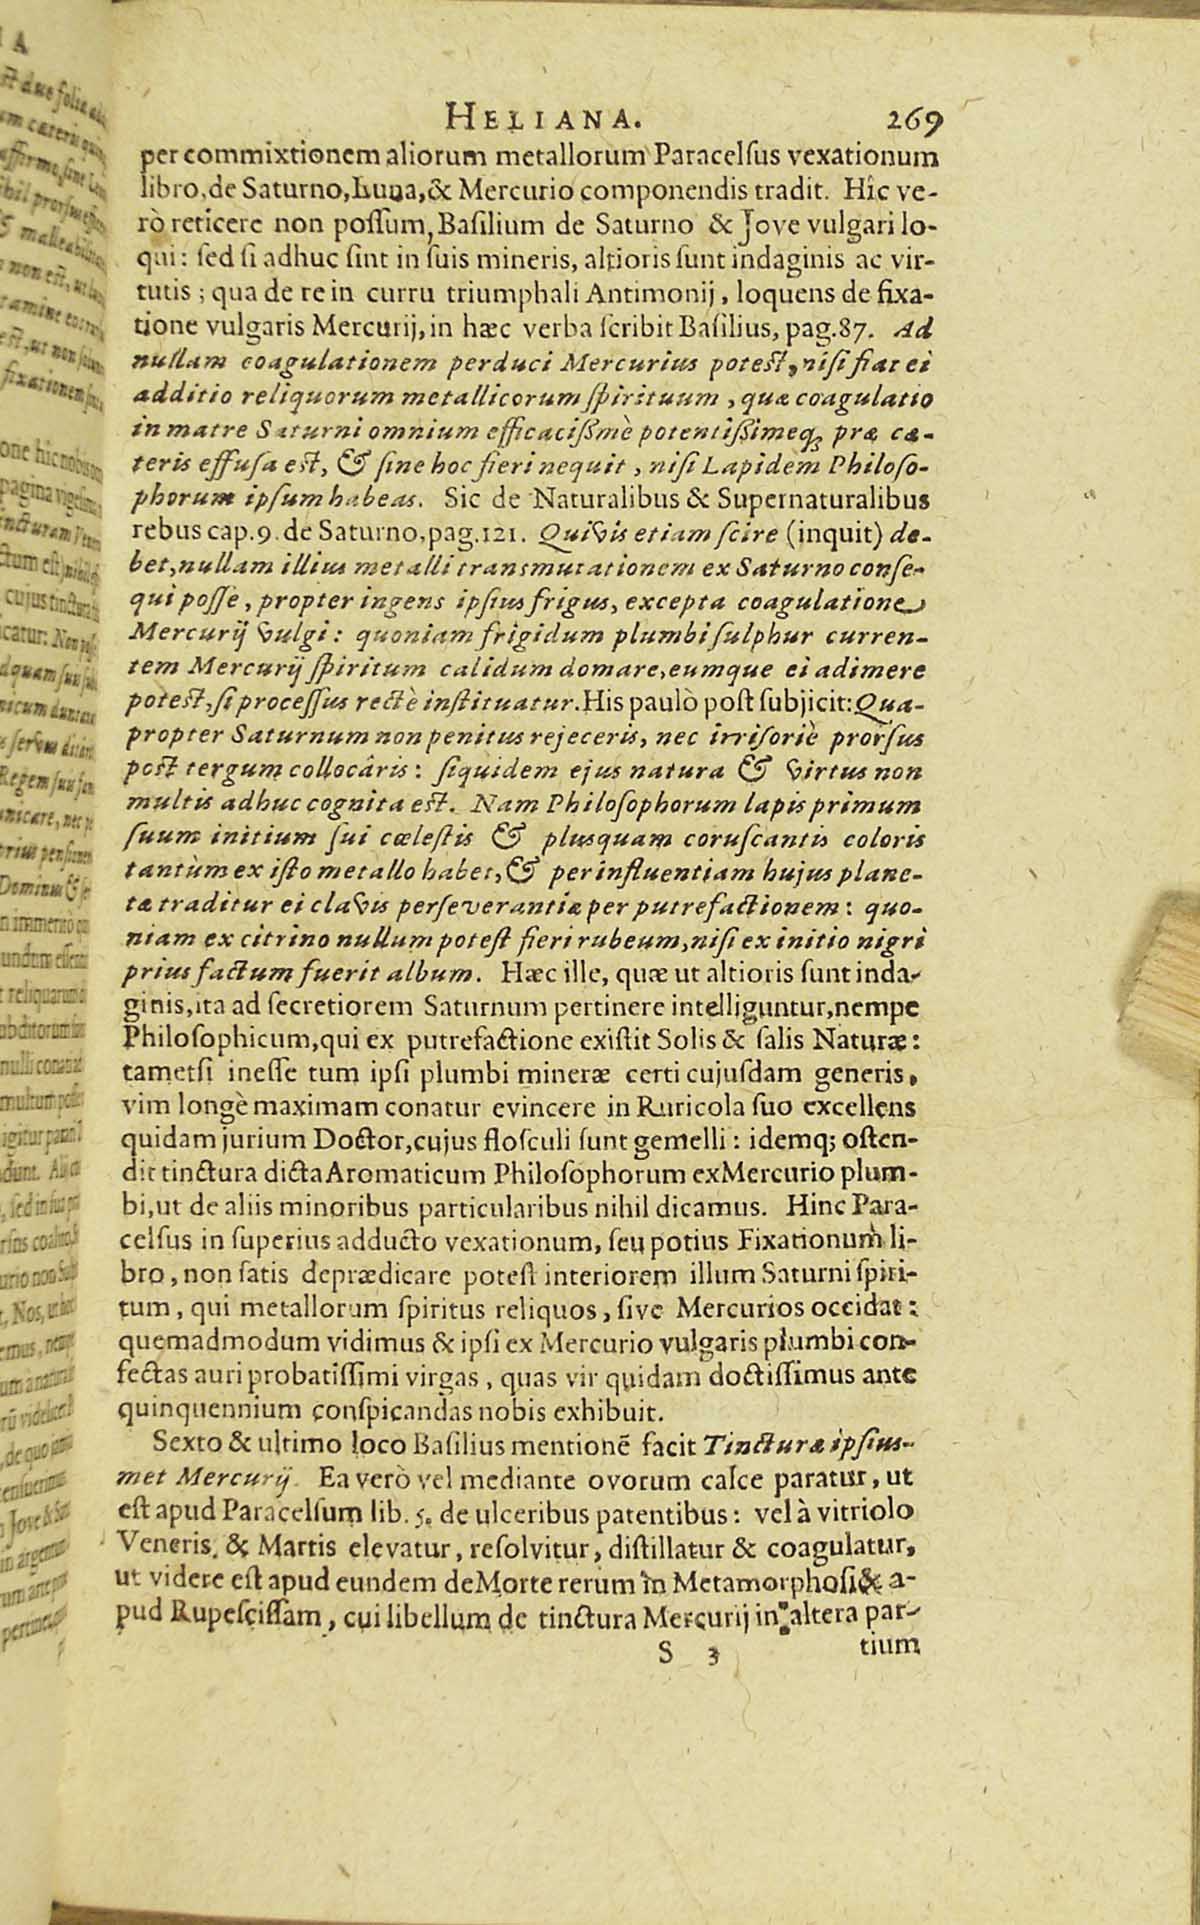 HELIANA. 269
per commixtionem aliorum metallorum Paracelſus vexationum
libro, de Saturno, Luna, & Mercurio componendis tradit. Hîc ve-
rò reticere non poſſum, Baſilium de Saturno & Jove vulgari lo-
qui: ſed ſi adhuc ſint in ſuis mineris, altioris ſunt indaginis ac vir-
tutis; qua de re in curru triumphali Antimonij, loquens de fixa-
tione vulgaris Mercurij, in hæc verba ſcribit Baſilius, pag. 87. Ad
nullam coagulationem perduci Mercurius poteſt, niſi fiat ei
additio reliquorum metallicorum ſpirituum, quæ coagulatio
in matre Saturni omnium efficaciſsimè potentiſsimeq; præ cæ-
teris effuſa eſt, & ſine hoc fieri nequit, niſi Lapidem Philoſo-
phorum ipſum habeas. Sic de Naturalibus & Supernaturalibus
rebus cap. 9. de Saturno, pag. 121. Quivis etiam ſcire (inquit) de-
bet, nullam illius metalli transmutationem ex Saturno conſe-
qui poſſe, propter ingens ipſius frigus, excepta coagulatione
Mercurij vulgi: quoniam frigidum plumbi ſulphur curren-
tem Mercurij ſpiritum calidum domare, eumque ei adimere
poteſt, ſi proceſſus rectè inſtituatur. His paulò poſt ſubjicit: Qua-
propter Saturnum non penitus rejeceris, nec irriſoriè prorſus
poſt tergum collocâris: ſiquidem ejus natura & virtus non
multis adhuc cognita eſt. Nam Philoſophorum lapis primum
ſuum initium ſui cœleſtis & pluſquam coruſcantis coloris
tantùm ex iſto metallo habet, & per influentiam hujus plane-
tæ traditur ei clavis perſeverantiæ per putrefactionem: quo-
niam ex citrino nullum poteſt fieri rubeum, niſi ex initio nigri
prius factum fuerit album. Hæc ille, quæ ut altioris ſunt inda-
ginis, ita ad ſecretiorem Saturnum pertinere intelliguntur, nempe
Philoſophicum, qui ex putrefactione exiſtit Solis & ſalis Naturæ:
tametſi ineſſe tum ipſi plumbi mineræ certi cujuſdam generis,
vim longè maximam conatur evincere in Ruricola ſuo excellens
quidam jurium Doctor, cujus floſculi ſunt gemelli: idemq; oſten-
dit tinctura dicta Aromaticum Philoſophorum ex Mercurio plum-
bi, ut de aliis minoribus particularibus nihil dicamus. Hinc Para-
celſus in ſuperius adducto vexationum, ſeu potius Fixationum li-
bro, non ſatis deprædicare poteſt interiorem illum Saturni ſpiri-
tum, qui metallorum ſpiritus reliquos, ſive Mercurios occidat:
quemadmodum vidimus & ipſi ex Mercurio vulgaris plumbi con-
fectas auri probatiſſimi virgas, quas vir quidam doctiſſimus ante
quinquennium conſpicandas nobis exhibuit.
Sexto & ultimo loco Baſilius mentionē facit Tincturæ ipſius-
met Mercurij. Ea verò vel mediante ovorum calce paratur, ut
eſt apud Paracelſum lib. 5. de ulceribus patentibus: vel à vitriolo
Veneris, & Martis elevatur, reſolvitur, diſtillatur & coagulatur,
ut videre eſt apud eundem de Morte rerum in Metamorphoſi & a-
pud Rupeſciſſam, cui libellum de tinctura Mercurij in altera par-
S 3 tium